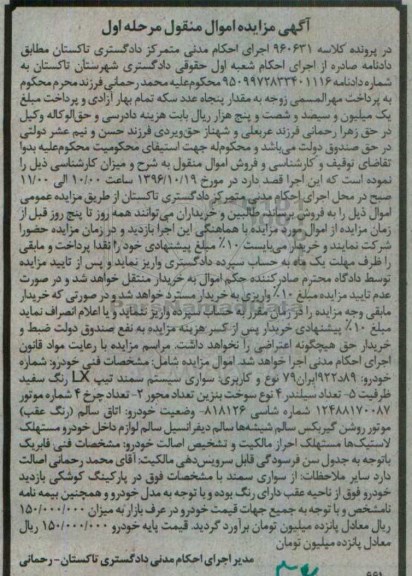 آگهی مزایده اموال منقول مرحله اول
در پرونده کلاسه ۹۶۰۶۳۱ اجرای احکام مدنی متمرکز دادگستری تاکستان مطابق
دادنامه صادره از اجرای احکام شعبه اول حقوقی دادگستری شهرستان تاکستان به
شماره دادنامه محکوم‌علیه محمد رحمانی فرزند محرم محکوم
به پرداخت مهرالمسمی زوجه به مقدار پنجاه عدد سکه تمام بهار آزادی و پرداخت مبلغ
یک میلیون و سیصد و شصت و پنج هزار ریال بابت هزینه دادرسی و حق‌الوکاله وکیل
در حق زهرا رحمانی فرزند عربعلی و شهناز حق‌وردی فرزند حسن و نیم عشر دولتی
در حق صندوق دولت می‌باشد و محکوم‌له جهت استیفای محکومیت محکوم‌علیه بدوا
تقاضای توقیف و کارشناسی و فروش اموال منقول به شرح و میزان کارشناسی ذیل را
نموده است که این اجرا قصد دارد در مورخ ۱۳۹۶/۱۰/۱۹ ساعت ۱۰/۰۰ الی ۱۱/۰۰
صبح در محل اجرای احکام مدنی متمرکز دادگستری تاکستان از طریق مزایده عمومی
اموال ذیل را به فروش برساند. طالبین و خریداران می‌توانند همه روز تا پنج روز قبل از
زمان مزایده از اموال مورد مزایده با هماهنگی این اجرا بازدید و در زمان مزایده حضورا
شرکت نمایند و خریدار می‌بایست ۱۰٪ مبلغ پیشنهادی خود را نقدا پرداخت و مابقی
را ظرف مهلت یک ماه به حساب سپرده دادگستری واریز نماید و پس از تایید مزایده
توسط دادگاه محترم صادرکننده حکم اموال به خریدار منتقل خواهد شد و در صورت
عدم تایید مزایده مبلغ ۱۰٪ واریزی به خریدار مسترد خواهد شد و در صورتی که خریدار
مابقی وجه مزایده را در زمان مقرر به حساب سپرده واریز ننماید و یا اعلام انصراف نماید
مبلغ ۱۰٪ پیشنهادی خریدار پس از کسر هزینه مزایده به نفع صندوق دولت ضبط و
خریدار حق هیچگونه اعتراضی را نخواهد داشت. مراسم مزایده با رعایت مواد قانون
اجرای احکام مدنی اجرا خواهد شد اموال مزایده شامل: مشخصات فنی خودرو: شماره
خودرو: ۸۹د۹۲۲ایران۷۹ نوع و کاربری: سواری سیستم سمند تیپ LX رنگ سفید
ظرفیت ۵- تعداد سیلندر ۴ نوع سوخت بنزین تعداد محور ۲- تعداد چرخ ۴ شماره موتور
۱۲۴۸۸۱۷۰۰۸۷ شماره شاسی ۸۱۸۱۲۶- وضعیت خودرو: اتاق سالم (رنگ عقب)
موتور روشن گیربکس سالم شیشه‌ها سالم دیفرانسیل سالم لوازم داخل خودرو مستهلک
لاستیک‌ها مستهلک احراز مالکیت و تشخیص اصالت خودرو: مشخصات فنی فابریک
باتوجه به جدول سن فرسودگی قابل سرویس‌دهی مالکیت: آقای محمد رحمانی اصالت
دارد سایر ملاحظات: از سواری سمند با مشخصات فوق در پارکینگ کوشکی بازدید
خودرو فوق از ناحیه عقب دارای رنگ بوده و با توجه به مدل خودرو و همچنین بیمه نامه
نامشخص و با توجه به جمیع جهات قیمت خودرو در عرف بازار به میزان ۱۵۰/۰۰۰/۰۰۰
ریال معادل پانزده میلیون تومان برآورد گردید. قیمت پایه خودرو ۱۵۰/۰۰۰/۰۰۰ ریال
معادل پانزده میلیون تومان
مدیر اجرای احکام مدنی دادگستری تاکستان- رحمانی